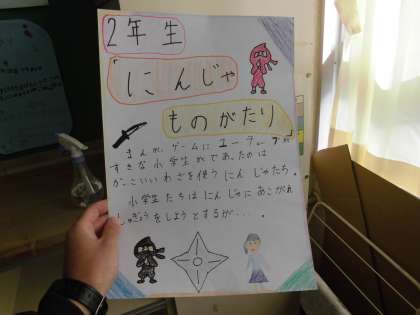 2年生
「にんじゃ
ものがたり」
まんが、ゲームに、ユーチューブが
すきな小学生がであったのは
がっこいいわざを使うにんじゃたち。
小学生たちはにんじゃにあこがれ
しゅぎょうをしようとするが....。